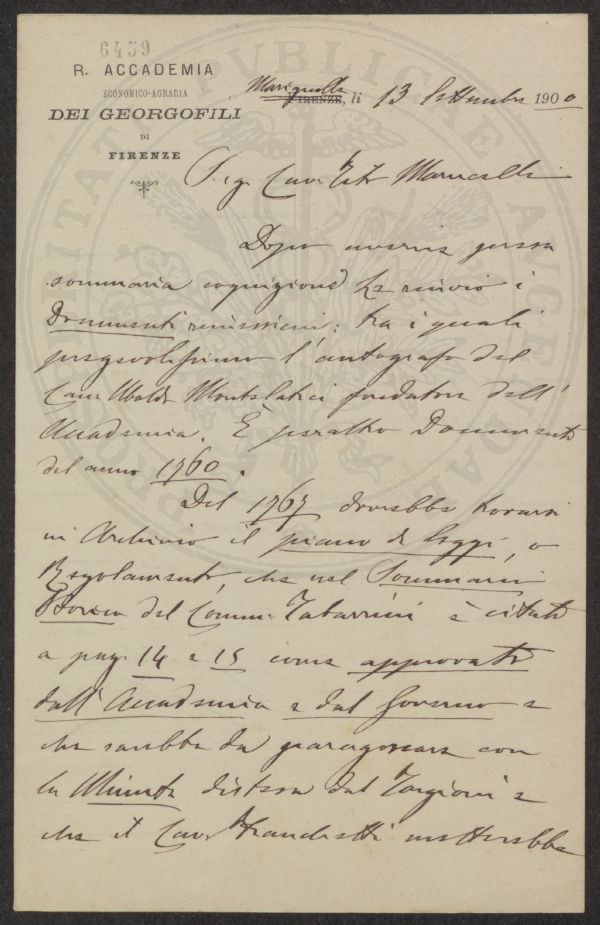 6459
R. ACCADEMIA
ECONOMICO-AGRARIA
DEI GEORGOFILI
DI
FIRENZE
Marignolle
FIRENZE, li 13 Settembre 1900
Sig. Cav. Tito Marucelli
Dopo averne presa
sommaria cognizione Le rinvio i
Documenti rimessimi; tra i quali
pregevolissimo l'autografo del
Can. Ubaldo Montelatici fondatore dell'
Accademia. È peraltro Documento
del anno 1760.
Del 1767 dovrebbe trovarsi
in Archivio il piano di leggi, o
Regolamento, che nel Sommario
Storico del Comm. Tabarrini è citato
a pag. 14 e 15 come approvato
dall'Accademia e dal Governo e
che sarebbe da paragonare con
la Minuta distesa dal Targioni e
che il Cav. Franchetti metterebbe